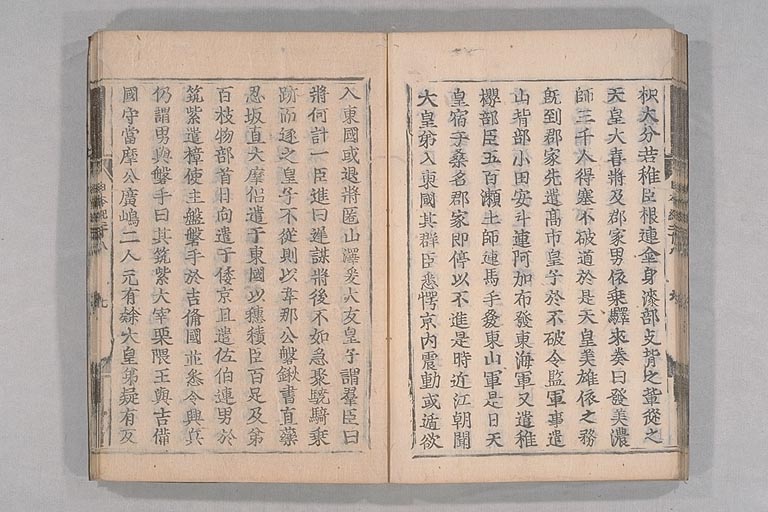 枳大分若稚臣根連金身漆部友背之輩從之
天皇大喜將及郡家男依乘驛來奏曰發美濃
師三千人得塞不破道於是天皇美雄依之務
既到郡家先遣高市皇子於不破令監軍事遣
山背部小田安斗連阿加布發東海軍又遣稚
櫻部臣五百瀬土師連馬手發東山軍是日天
皇宿于桑名郡家即停以不進是時近江朝聞
大皇弟入東國其群臣悉愕京内震動或遁欲
入東國或退將匿山澤爰大友皇子謂羣臣曰
將何計一臣進曰遲謀將後不如急聚驍騎乘
跡而逐之皇子不從則以韋那公磐鍬書直藥
忍坂直大摩侶遣于東國以穗積臣百足及弟
百枝物部首日向遣于倭京且遣佐伯連男於
筑紫遣樟使主盤磐手於吉備國並悉令興兵
仍謂男與磐手曰其筑紫大宰栗隈王與吉備
國守當摩公廣嶋二人元有隸大皇弟疑有反